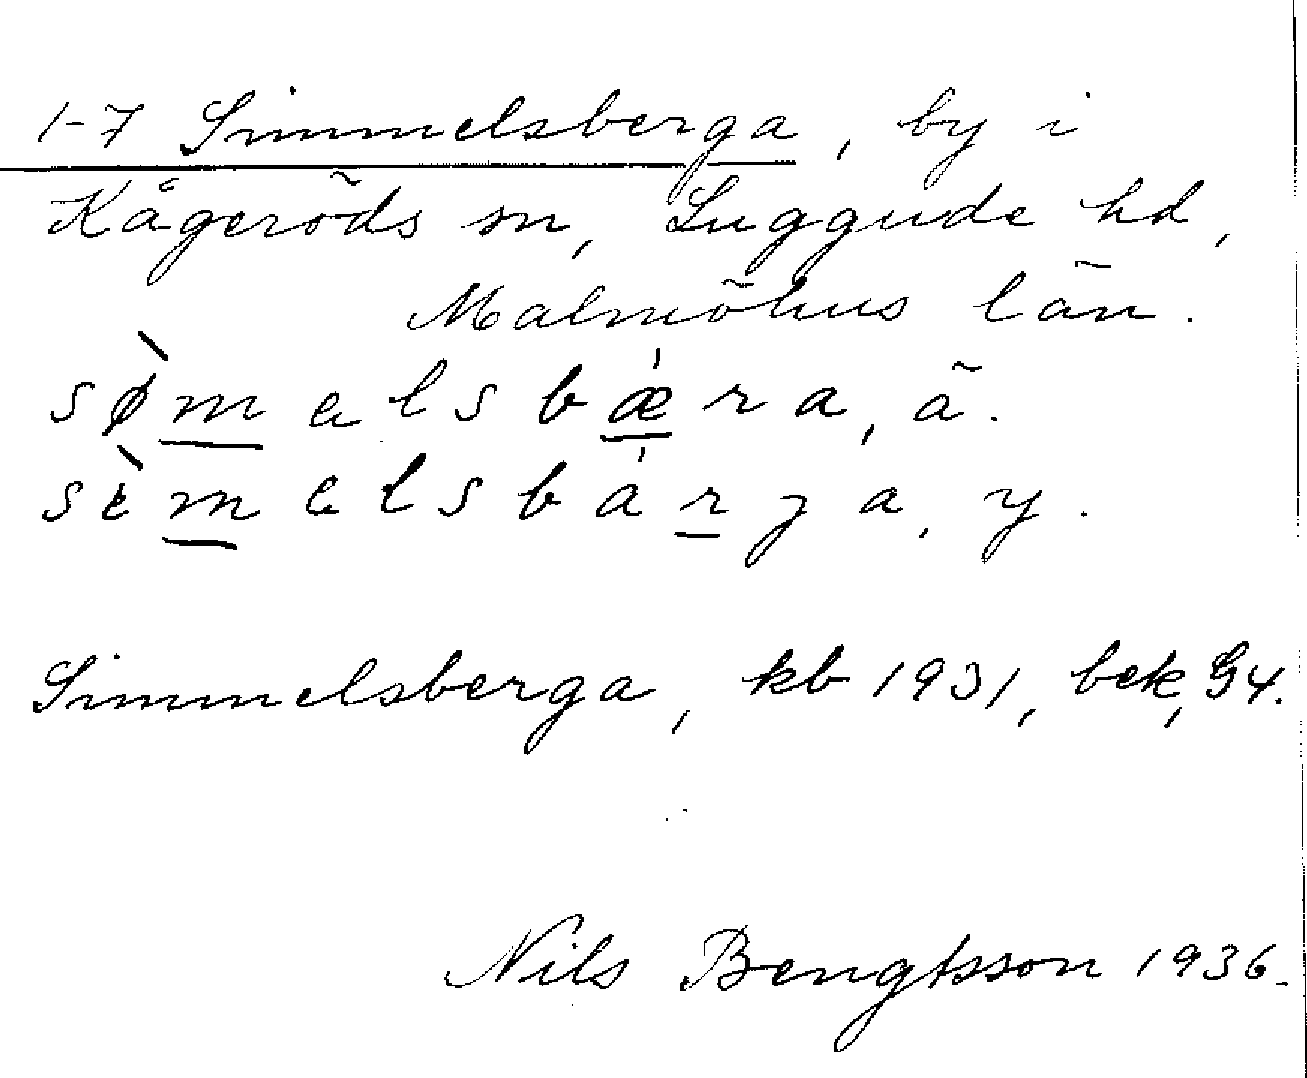 1-7 Simmelsberga, by i
Kågeröds sn, Luggude hd,
Malmöhus län.
sø̀melsbǽra, ä.
sèmelsbárga, y.
Simmelsberga, kb 1931, bek, G4.
Nils Bengtsson 1936.